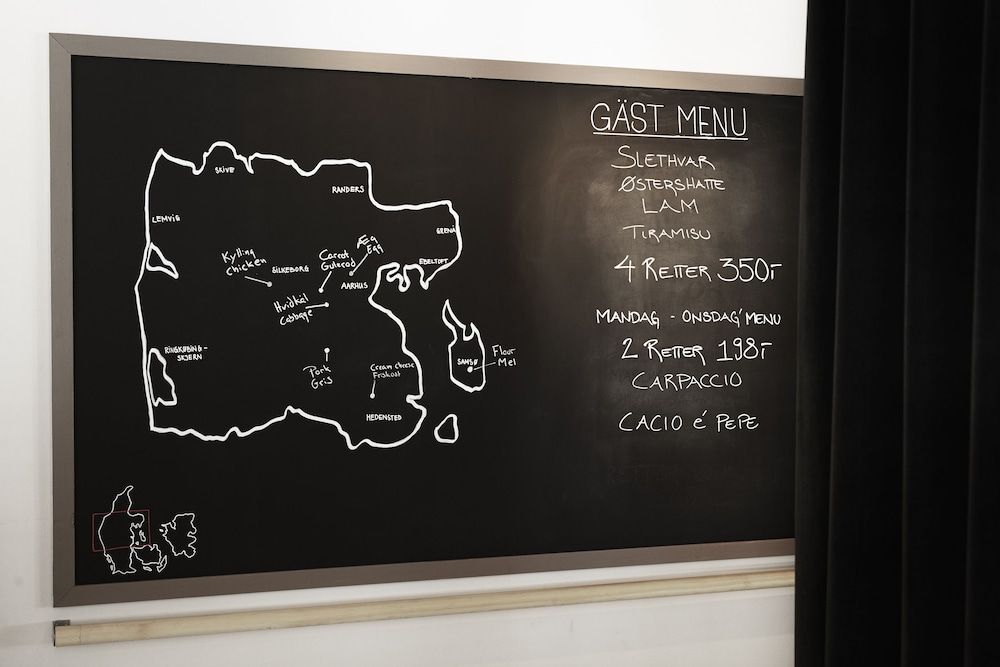 SKIVE
RANDERS
LEMVIG
GRENA
EBELTOFT
Kylling
chicken
SILKEBORG
Carrot
Gulerod
Æg
Egg
AARHUS
Hvidkål
Cabbage
RINGKØBING-
SKJERN
Pork
Gris
Cream cheese
Friskost
HEDENSTED
SAMSØ
Flour
Mel
GÄST MENU
SLETHVAR
ØSTERSHATTE
LAM
TIRAMISU
4 RETTER 350,-
MANDAG - ONSDAG'MENU
2 RETTER 198,-
CARPACCIO
CACIO é PEPE